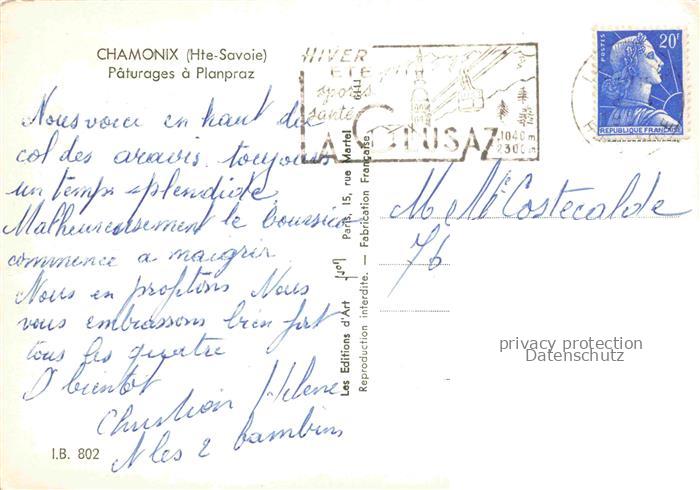 CHAMONIX (Hte-Savoie)
Pâturages à Planpraz
Nous voici en haut du
col des aravis. toujours
un temps splendide.
Malheureusement le boursico
commence a maigrir
Nous en profitons Nous
vous embrassons bien fort
tous les quatre
A bientot
Christian Helene
les 2 bambins
I.B. 802
HIVER
ETE
sports
santé
LA CLUSAZ
1040m
2300m
POSTES
20F
REPUBLIQUE FRANÇAISE
Les Editions d'Art Paris, 15, rue Martel
Reproduction interdite. — Fabrication Française.
M Me Costecalde
76
privacy protection
Datenschutz